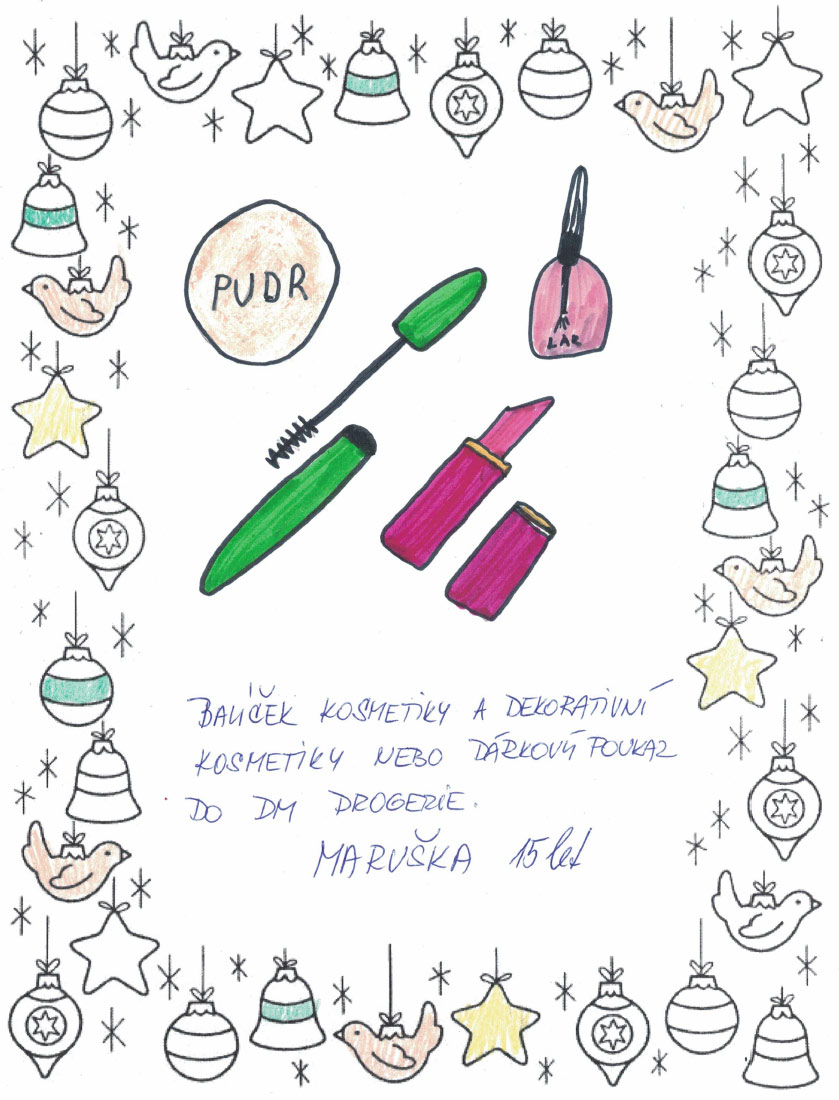 PUDR
LAK
BALÍČEK KOSMETIKY A DEKORATIVNÍ
KOSMETIKY NEBO DÁRKOVÝ POUKAZ
DO DM DROGERIE.
MARUŠKA 15 let